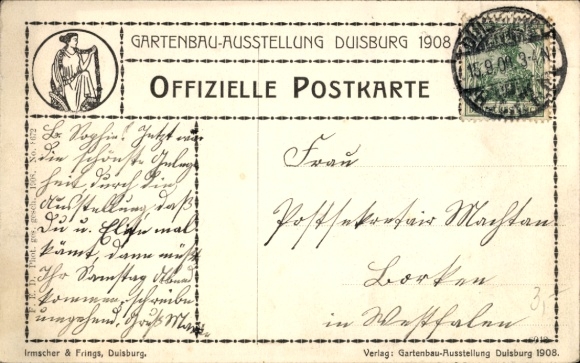 GARTENBAU-AUSSTELLUNG DUISBURG 1908
OFFIZIELLE POSTKARTE
15.9.08. 3-4
L. Sophie! Jetzt wär
die schönste Gelegen
heit durch die
Ausstellung, daß
Du u. Elsie mal
kämt, dann müßt
Ihr Samstag Abend
kommen, schreibe
umgehend. Gruß
Frau
Postsekretair Machtan
Borken
in Westfalen
3,-
Irmscher & Frings, Duisburg.
Verlag: Gartenbau-Ausstellung Duisburg 1908.